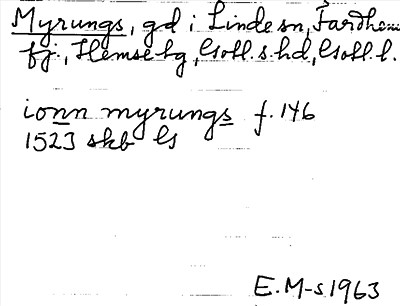 Myrungs, gd i Linde sn, Fardhem
fj., Hemse bg, Gotl. s. hd, Gotl. l.
ionn myrungs f. 146
1523 skb Gs
E. M-s 1963